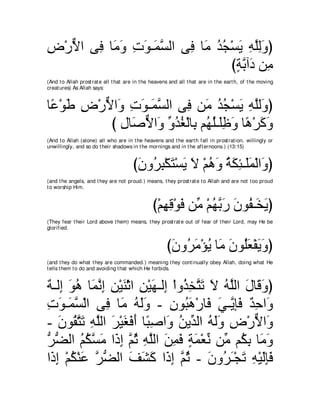 (وَلِلَّهِ يَسْجُدُ مَا فِى السَّمَـوَتِ وَمَا فِى الاٌّرْضِ
مِن دَآبَّةٍ)
(And to Allah prostrate all that are in the heavens and all that are in the earth, of the moving
creatures) As Allah says:
(وَللَّهِ يَسْجُدُ مَن فِى السَّمَـوَتِ وَالاٌّرْضِ طَوْعًا
وَكَرْهًا وَظِلَـلُهُم بِالْغُدُوِّ وَالاٌّصَالِ )
(And to Allah (alone) all who are in the heavens and the earth fall in prostration, willingly or
unwillingly, and so do their shadows in the mornings and in the afternoons.) (13:15)
(وَالْمَلَـئِكَةُ وَهُمْ لاَ يَسْتَكْبِرُونَ)
(and the angels, and they are not proud.) means, they prostrate to Allah and are not too proud
to worship Him.
(يَخَـفُونَ رَبَّهُمْ مِّن فَوْقِهِمْ)
(They fear their Lord above them) means, they prostrate out of fear of their Lord, may He be
glorified.
(وَيَفْعَلُونَ مَا يُؤْمَرُونَ)
(and they do what they are commanded.) meaning they continually obey Allah, doing what He
tells them to do and avoiding that which He forbids.
(وَقَالَ اللَّهُ لاَ تَتَّخِذُواْ إِلـهَيْنِ اثْنَيْنِ إِنَّمَا هُوَ إِلـهٌ
وَاحِدٌ فَإيَّـيَ فَارْهَبُونِ - وَلَهُ مَا فِى السَّمَـوَتِ
وَالاٌّرْضِ وَلَهُ الدِّينُ وَاصِبًا أَفَغَيْرَ اللَّهِ تَتَّقُونَ -
وَمَا بِكُم مِّن نِّعْمَةٍ فَمِنَ اللَّهِ ثُمَّ إِذَا مَسَّكُمُ الضُّرُّ
فَإِلَيْهِ تَجْـَرُونَ - ثُمَّ إِذَا كَشَفَ الضُّرَّ عَنْكُمْ إِذَا